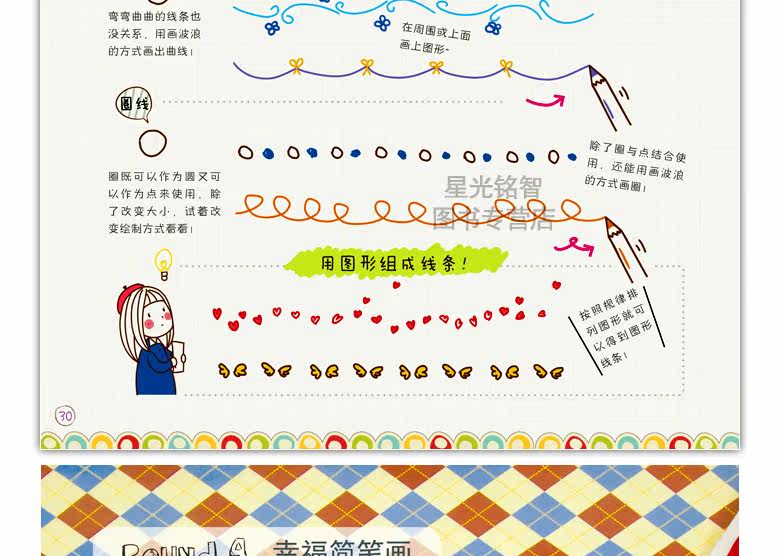 弯弯曲曲的线条也
没关系，用画波浪
的方式画出曲线！
在周围或上面
画上图形~
圈线
除了圈与点结合使
用，还能用画波浪
的方式画圈！
圈既可以作为圆又可
以作为点来使用，除
了改变大小，试着改
变绘制方式看看！
星光铭智
图书专营店
用图形组成线条！
按照规律排
列图形就可
以得到图形
线条！
30
ROUND 9
幸福简笔画